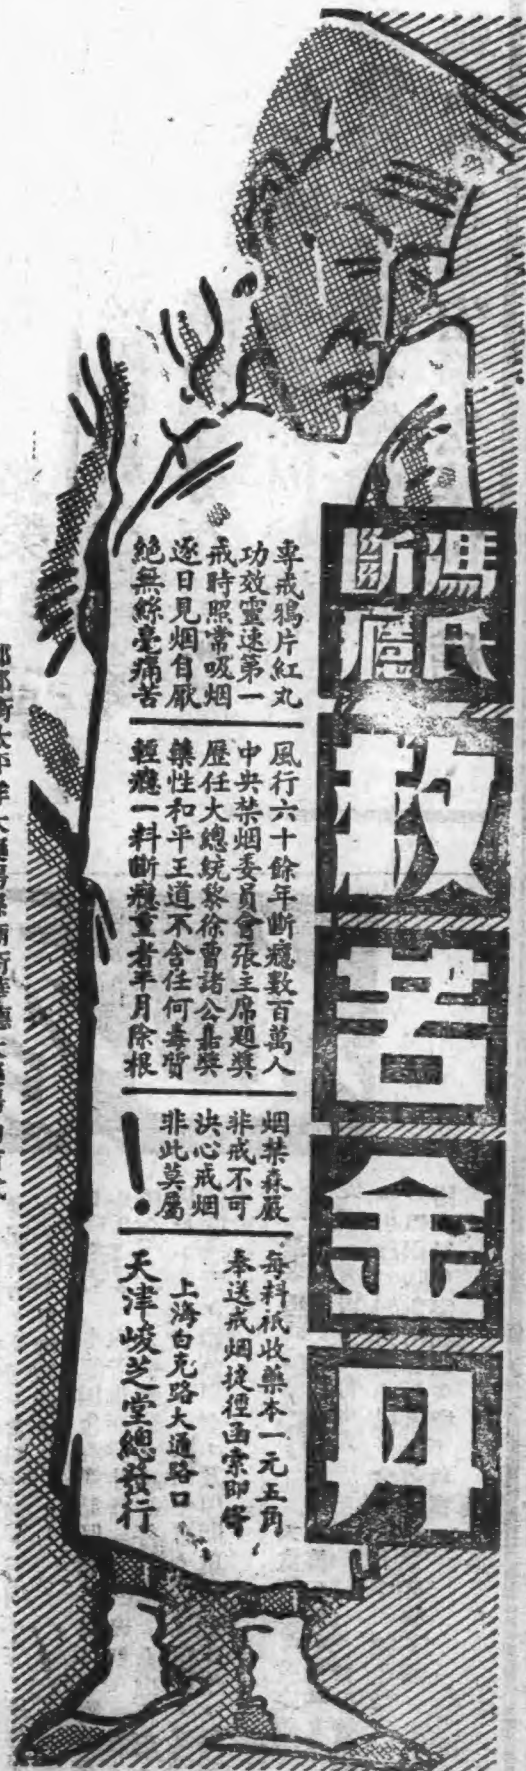 馮氏
斷癮
救苦金丹
專戒鴉片紅丸
功效靈速第一
戒時照常吸烟
逐日見烟自厭
絕無絲毫痛苦
風行六十餘年斷癮數百萬人
中央禁烟委員會張主席題獎
歷任大總統黎徐曹諸公嘉獎
藥性和平王道不含任何毒質
輕癮一料斷癮重者年月除根
烟禁森嚴
非戒不可
决心戒烟
非此莫屬
!
每料祇收藥本一元五角
奉送戒烟捷徑函索即寄
上海白克路大通路口
天津峻芝堂總發行